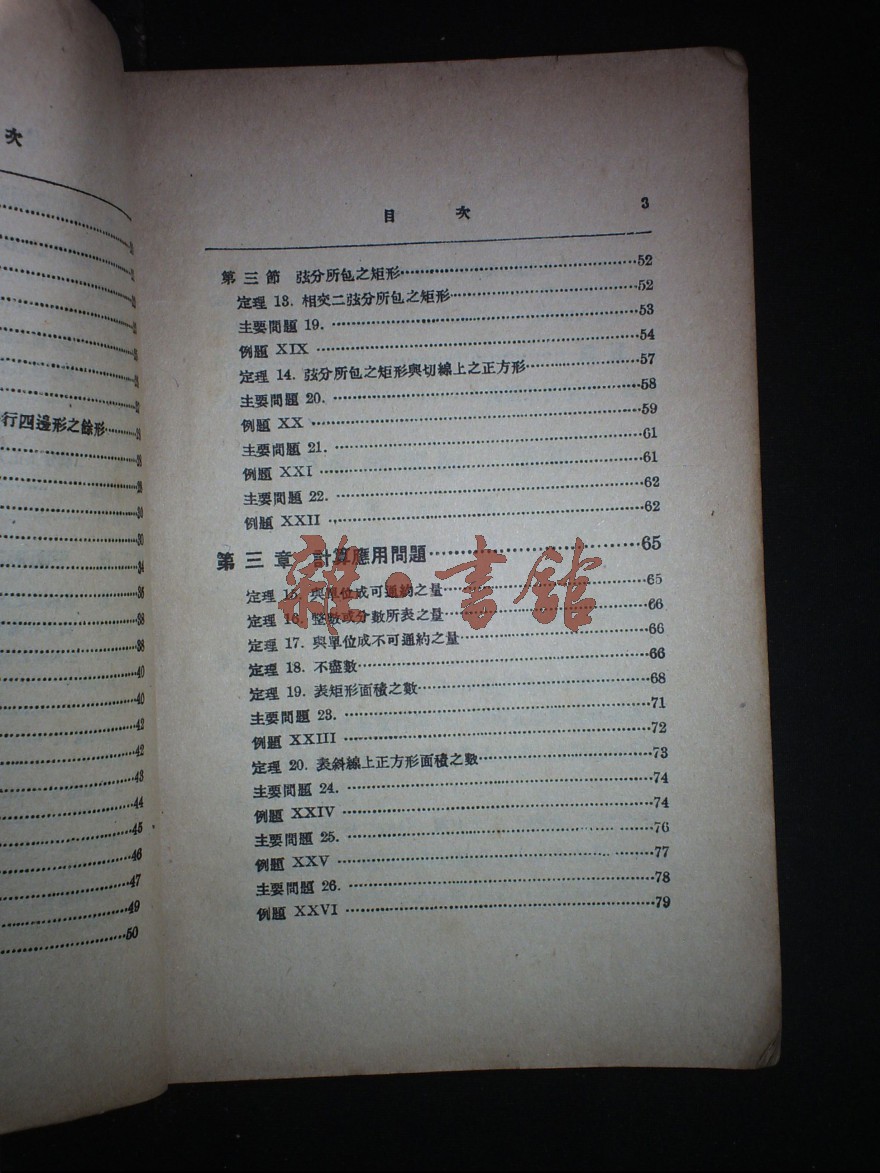 次
行四邊形之餘形
40
40
42
42
43
44
45
46
47
49
50
目 次 3
第三節 弦分所包之矩形 52
定理 13. 相交二弦分所包之矩形 52
主要問題 19. 53
例題 XIX 54
定理 14. 弦分所包之矩形與切線上之正方形 57
主要問題 20. 58
例題 XX 59
主要問題 21. 61
例題 XXI 61
主要問題 22. 62
例題 XXII 62
第三章 計算應用問題 65
定理 15. 與單位成可通約之量 65
定理 16. 整數或分數所表之量 66
定理 17. 與單位成不可通約之量 66
定理 18. 不盡數 66
定理 19. 表矩形面積之數 68
主要問題 23. 71
例題 XXIII 72
定理 20. 表斜線上正方形面積之數 73
主要問題 24. 74
例題 XXIV 74
主要問題 25. 76
例題 XXV 77
主要問題 26. 78
例題 XXVI 79
雜·書館